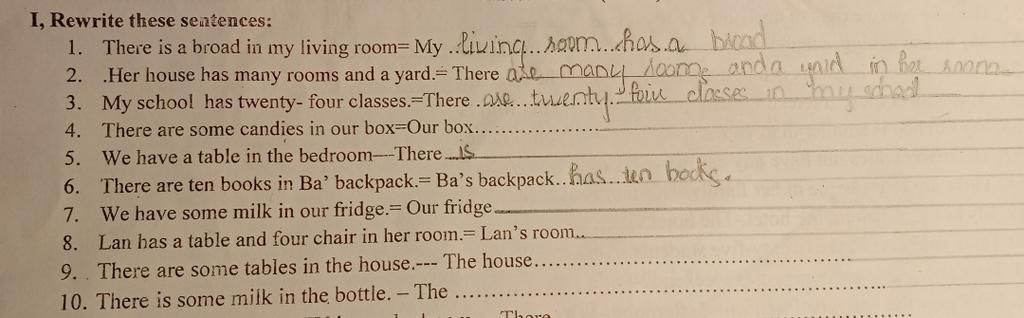 I, Rewrite these sentences:
1. There is a broad in my living room= My ..living...room...has.a broad
2. .Her house has many rooms and a yard.= There are many rooms and a yard in her
3. My school has twenty- four classes.=There .are...twenty.-four classes in my school
4. There are some candies in our box=Our box......................
5. We have a table in the bedroom---There ...is
6. There are ten books in Ba' backpack.= Ba's backpack..has...ten books.
7. We have some milk in our fridge.= Our fridge
8. Lan has a table and four chair in her room.= Lan's room..
9. . There are some tables in the house.--- The house......................................................
10. There is some milk in the bottle. – The ........................................................................
There